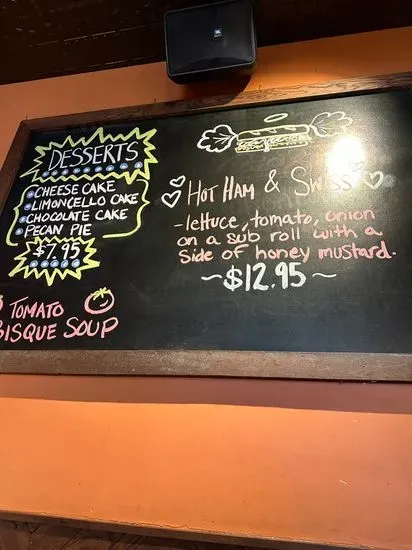 JBL
DESSERTS
CHEESE CAKE
LIMONCELLO CAKE
CHOCOLATE CAKE
PECAN PIE
$7.95
TOMATO
BISQUE SOUP
HOT HAM & SWISS
- lettuce, tomato, onion
on a sub roll with a
side of honey mustard.
~$12.95~